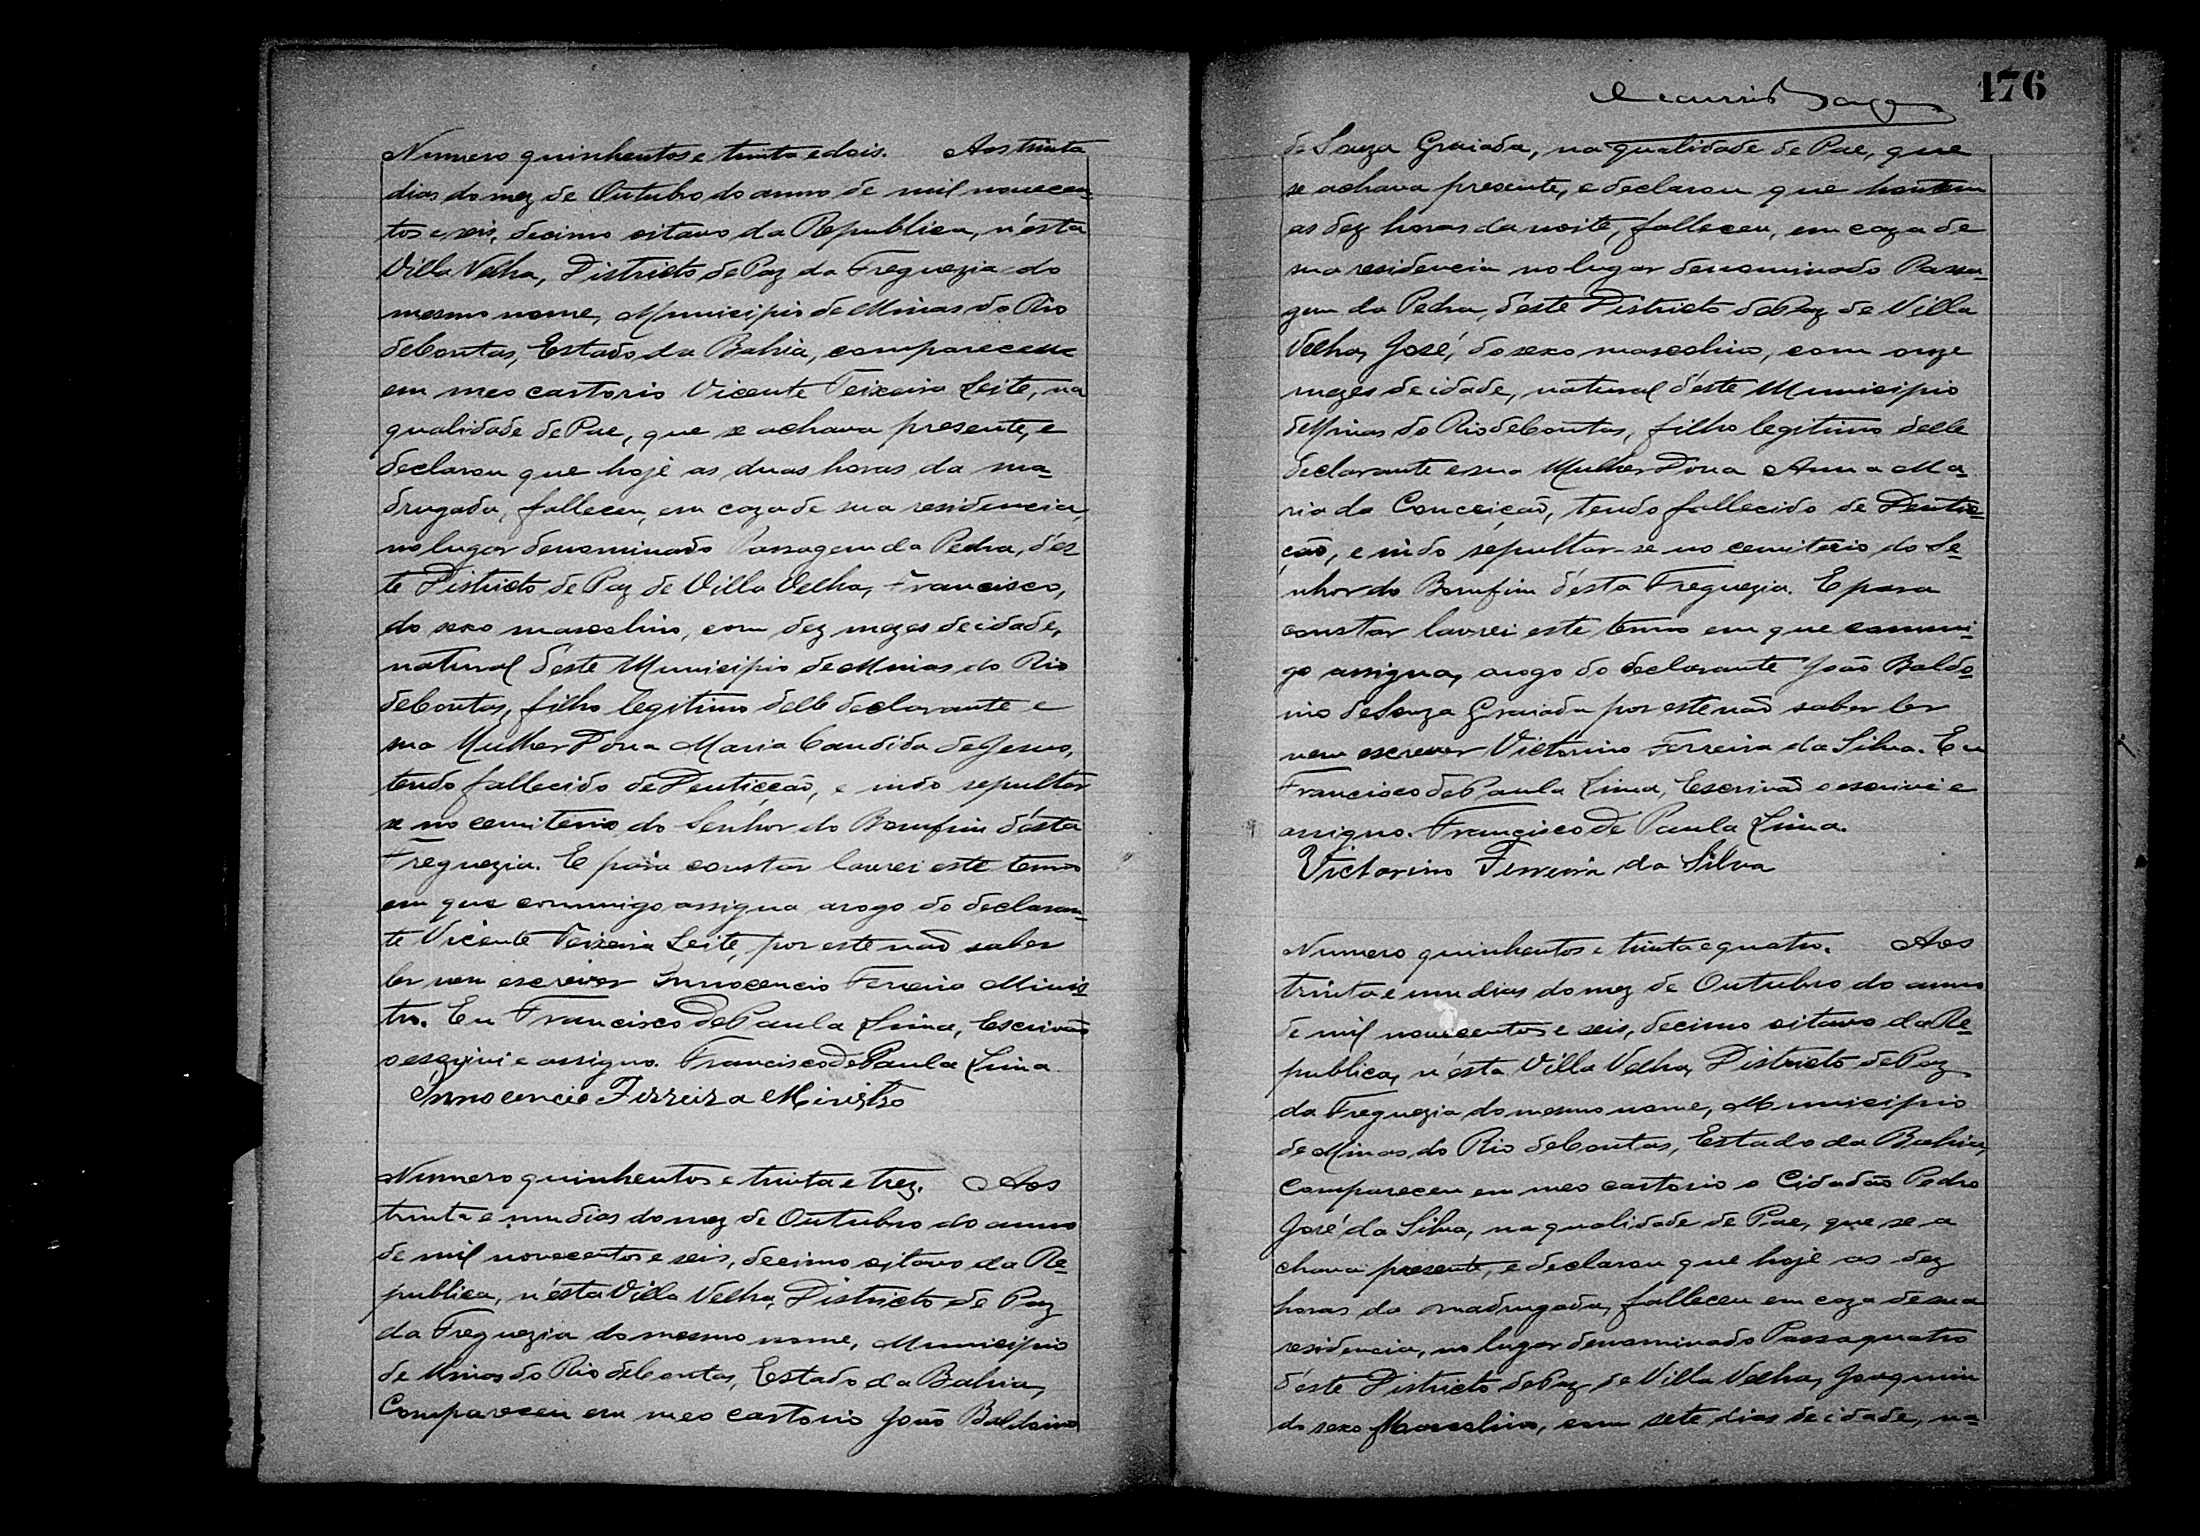 Numero quinhentos e trinta e dois. Aos trinta
dias do mez de Outubro do anno de mil novecen-
tos e seis, decimo oitavo da Republica, n'ésta
Villa Velha, Districto de Paz da Freguezia do
mesmo nome, Municipio de Minas do Rio
de Contas, Estado da Bahia, compareceu
em meo cartorio Vicente Teixeira Leite, na
qualidade de Pae, que se achava presente, e
declarou que hojè as duas horas da ma-
drugada, falleceu, em caza de sua residencia,
no lugar denominado Passagem da Pedra, d'es
te Districto de Paz de Villa Velha, Francisco,
do sexo mascolino, com dez mezes de idade,
natural d'este Municipio de Minas do Rio
de Contas, filho legitimo delle declarante e
sua Mulher Dona Maria Candida de Jesus,
tendo fallecido de Denticção, e indo sepultar
se no cemiterio do Senhor do Bomfim d'ésta
Freguezia. E para constar lavrei este termo
em que commigo assigna arogo do declaran-
te Vicente Teixeira Leite, por este não saber
ler nem escrever Innocencio Ferreira Minis-
tro. Eu Francisco de Paula Lima, Escrivão
o escrivi e assigno. Francisco de Paula Lima
Innocencio Ferreira Ministro
Numero quinhentos e trinta e trez. Aos
trinta e um dias do mez de Outubro do anno
de mil novecentos e seis, decimo oitavo da Re-
publica, n'ésta Villa Velha, Districto de Paz
da Freguezia do mesmo nome, Municipio
de Minas do Rio de Contas, Estado da Bahia,
Compareceu em meo cartorio João Baldoino
176
de Souza Graiada, na qualidade de Pae, que
se achava presente, e declarou que hontem
as dez horas da noite, falleceu, em caza de
sua residencia no lugar denominado Passa-
gem da Pedra, d'éste Districto de Paz de Villa
Velha, José, do sexo mascolino, com onze
mezes de idade, natural d'éste Municipio
de Minas do Rio de Contas, filho legitimo delle
declarante e sua Mulher Dona Anna Ma-
ria da Conceição, tendo fallecido de Denti-
ção, e indo sepultar-se no cemiterio do Se-
nhor do Bomfim d'ésta Freguezia. E para
constar lavrei este termo em que commi-
go assigna, arogo do declarante João Baldo-
ino de Souza Graiada por este não saber ler
nem escrever Victorino Ferreira da Silva. Eu
Francisco de Paula Lima, Escrivão o escrivi e
assigno. Francisco de Paula Lima.
Victorino Ferreira da Silva
Numero quinhentos e trinta e quatro. Aos
trinta e um dias do mez de Outubro do anno
de mil novecentos e seis, decimo oitavo da Re-
publica, n'ésta Villa Velha, Districto de Paz
da Freguezia do mesmo nome, Municipio
de Minas do Rio de Contas, Estado da Bahia,
Compareceu em meo cartorio o Cidadão Pedro
José da Silva, na qualidade de Pae, que se a
chava presente, e declarou que hojè as dez
horas da madrugada, falleceu em caza de sua
residencia, no lugar denominado Passaquatro
d'éste Districto de Paz de Villa Velha, Joaquim
do sexo Mascolino, com sete dias de idade, na-